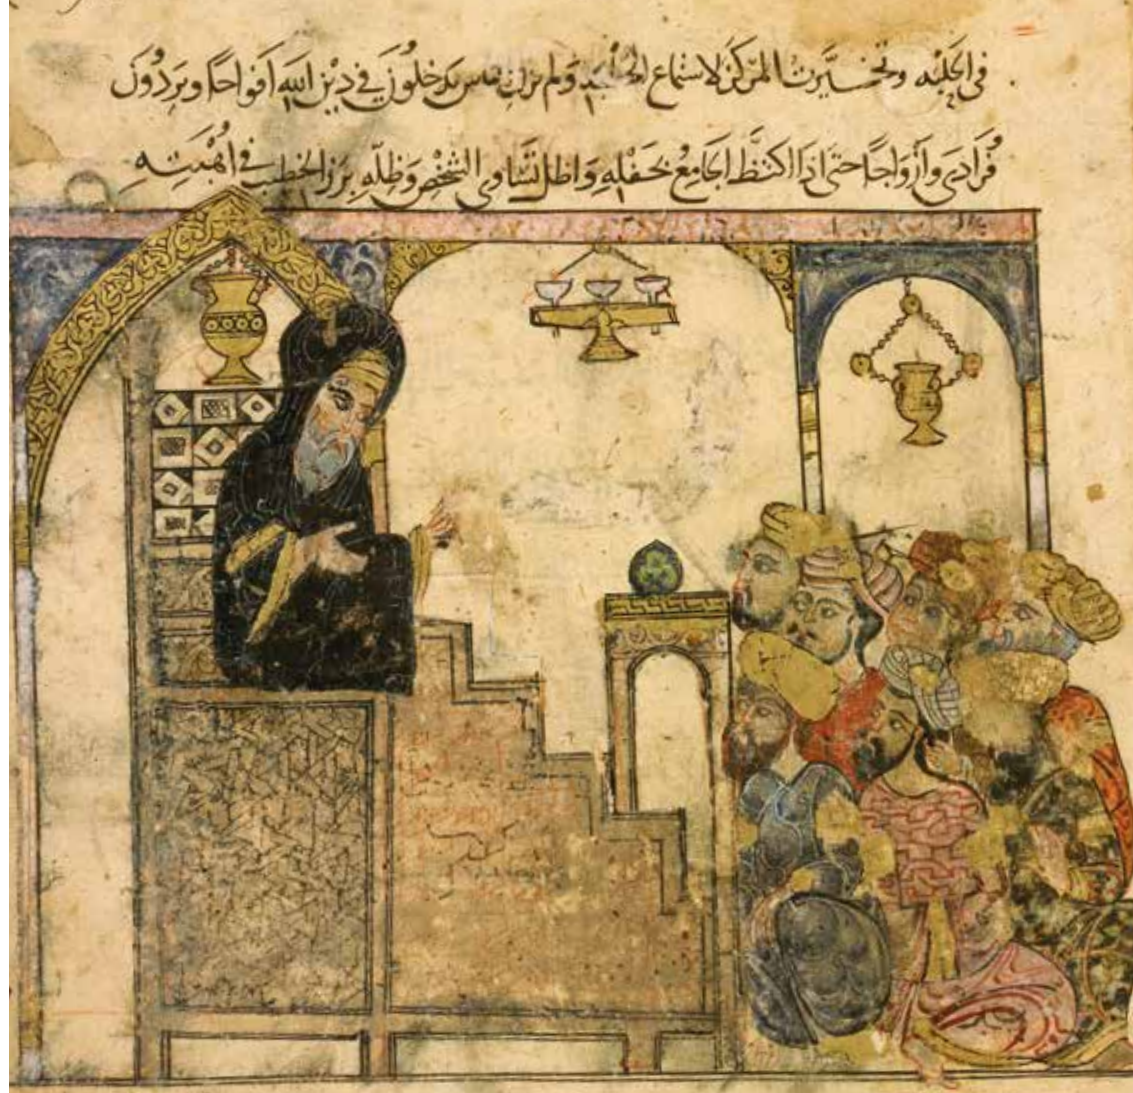 في الحَلْبَه وتخيَّرت المركز لاستماع الخطبه وَلم يزل الناس يَدخلُونَ في دِيْن الله اَفواجًا ويَرِدُونَ
فُرَادَى وَأَزْوَاجًا حتى اذَا اكتظَّ الجَامعُ بحَفْلِهِ وَاظل تَسَاوِي الشخص وَظلِّهِ بَرَزَ الخطيب في اُهْبَتِهِ